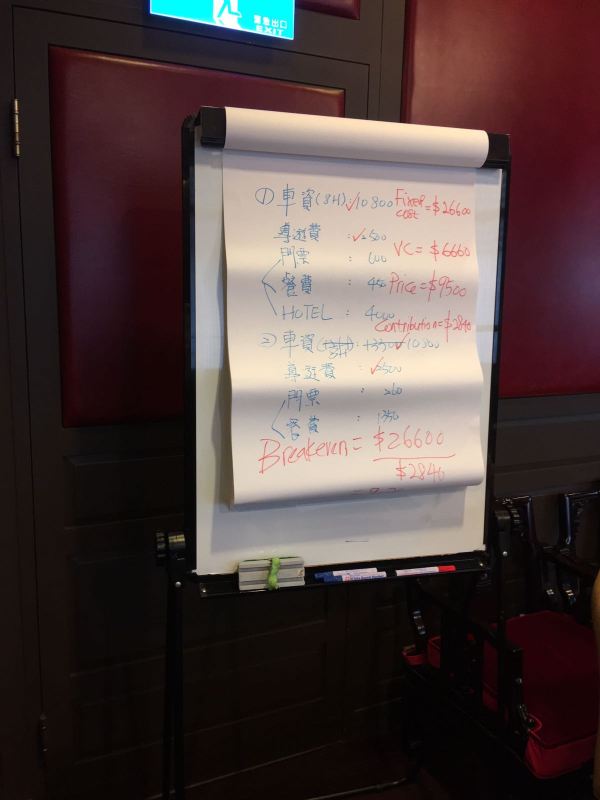 緊急出口
EXIT
① 車資(8H):✓10800 Fixed cost = $26600
導遊費 : ✓2500
門票 : 600 VC = $6660
餐費 : 450 Price = $9500
HOTEL : 4000 Contribution = $2840
② 車資( 8H) : ✓10800
導遊費 : ✓2500
門票 : 260
餐費 : 1350
Breakeven = $26600
$2840